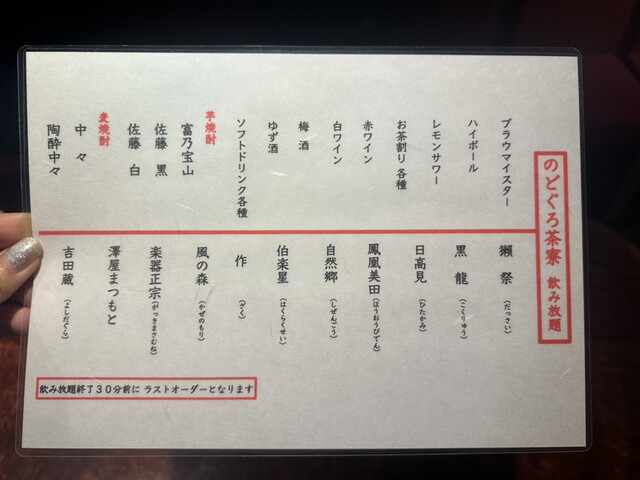 のどぐろ茶寮 飲み放題
ブラウマイスター
ハイボール
レモンサワー
お茶割り 各種
赤ワイン
白ワイン
梅 酒
ゆず酒
ソフトドリンク各種
芋焼酎
富乃宝山
佐藤 黒
佐藤 白
麦焼酎
中 々
陶酔中々
獺 祭(だっさい)
黒 龍(こくりゅう)
日高見(ひたかみ)
鳳凰美田(ほうおうびでん)
自然郷(しぜんごう)
伯楽星(はくらくせい)
作(ざく)
風の森(かぜのもり)
楽器正宗(がっきまさむね)
澤屋まつもと
吉田蔵(よしだぐら)
飲み放題終了30分前に ラストオーダーとなります